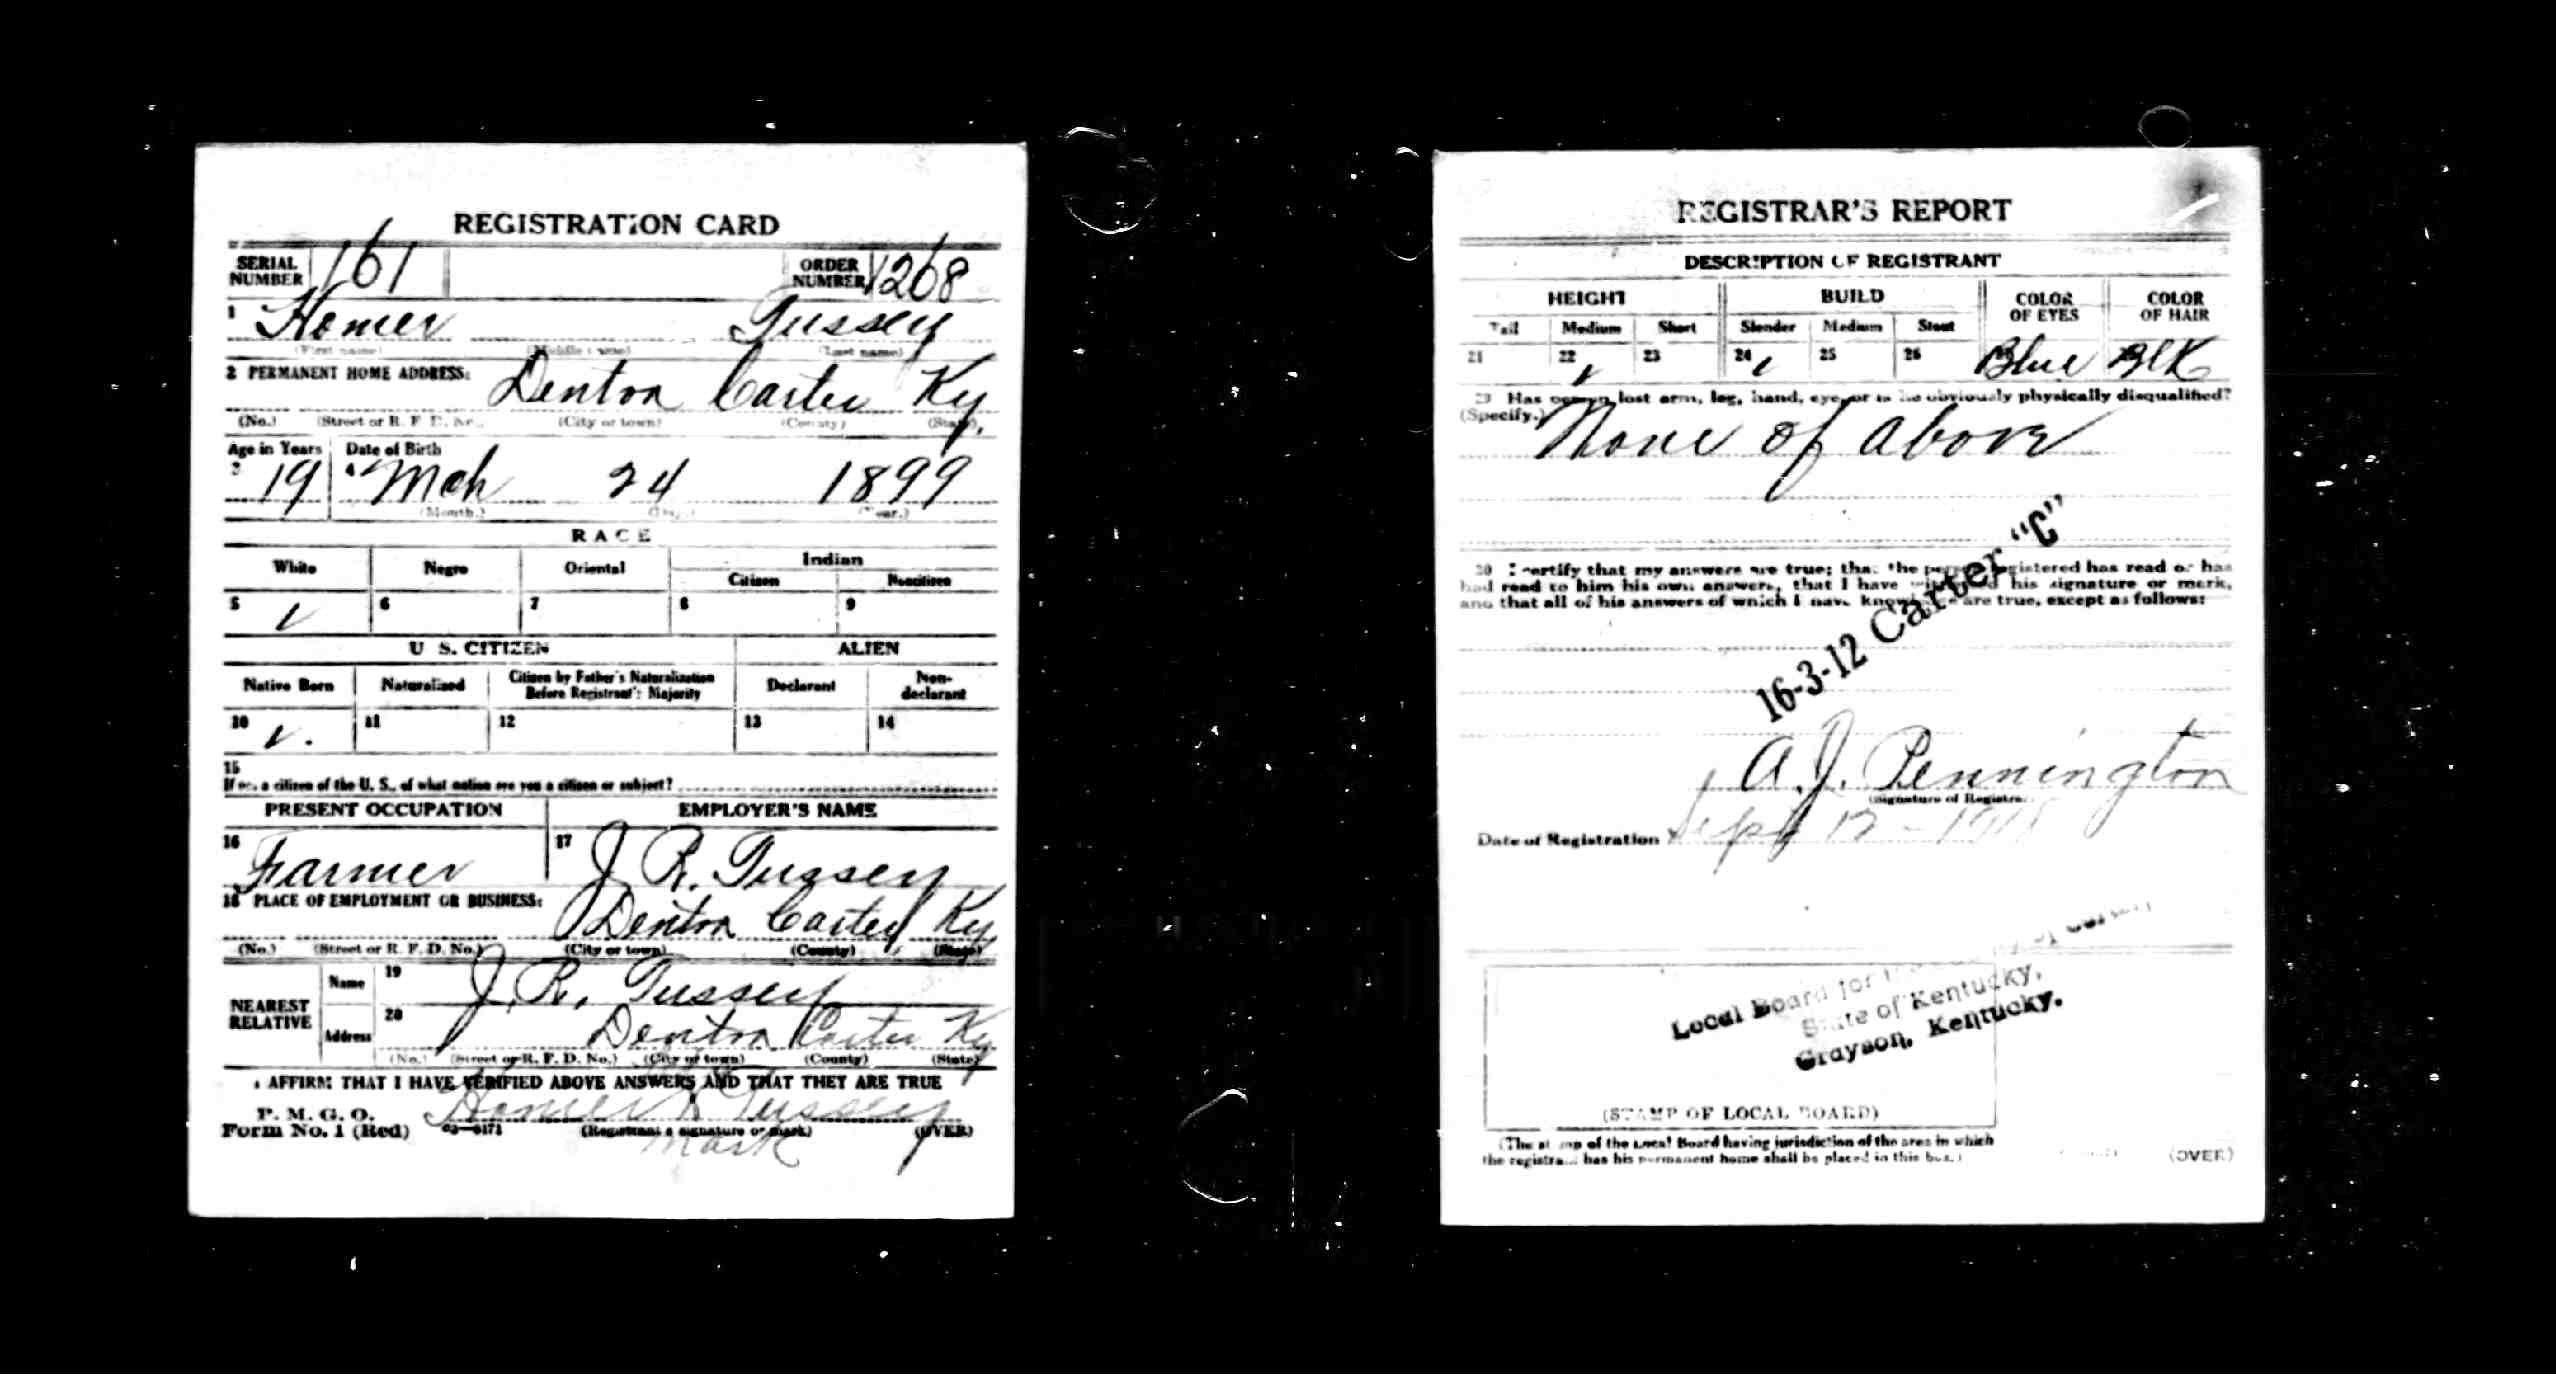 REGISTRATION CARD
SERIAL NUMBER 161 ORDER NUMBER 1268
1 Homer Tussey
(First name) (Middle name) (Last name)
2 PERMANENT HOME ADDRESS: Denton Carter Ky.
(No.) (Street or R. F. D. No.) (City or town) (County) (State)
Age in Years Date of Birth
3 19 4 Mch 24 1899
(Month.) (Day.) (Year.)
RACE
White Negro Oriental Indian
Citizen Noncitizen
5 ✓ 6 7 8 9
U. S. CITIZEN ALIEN
Native Born Naturalized Citizen by Father's Naturalization Before Registrant's Majority Declarant Non-declarant
10 ✓. 11 12 13 14
15
If not a citizen of the U. S., of what nation are you a citizen or subject?
PRESENT OCCUPATION EMPLOYER'S NAME
16 Farmer 17 J. R. Tussey
18 PLACE OF EMPLOYMENT OR BUSINESS: Denton Carter Ky
(No.) (Street or R. F. D. No.) (City or town) (County) (State)
NEAREST RELATIVE Name 19 J. R. Tussey
Address 20 Denton Carter Ky
(No.) (Street or R. F. D. No.) (City or town) (County) (State)
I AFFIRM THAT I HAVE VERIFIED ABOVE ANSWERS AND THAT THEY ARE TRUE
P. M. G. O.
Form No. 1 (Red) 03—6171 Homer X Tussey
(Registrant's signature or mark) (OVER)
mark
REGISTRAR'S REPORT
DESCRIPTION OF REGISTRANT
HEIGHT BUILD COLOR OF EYES COLOR OF HAIR
Tall Medium Short Slender Medium Stout
21 22 ✓ 23 24 ✓ 25 26 Blue Blk
29 Has person lost arm, leg, hand, eye, or is he obviously physically disqualified?
(Specify.) None of above
30 I certify that my answers are true; that the person registered has read or has
had read to him his own answers, that I have witnessed his signature or mark,
and that all of his answers of which I have knowledge are true, except as follows:
16-3-12 Carter "C"
A. J. Pennington
(Signature of Registrar)
Date of Registration Sept 12 - 1918
Local Board for the County of Carter,
State of Kentucky,
Grayson, Kentucky.
(STAMP OF LOCAL BOARD)
(The stamp of the Local Board having jurisdiction of the area in which
the registrant has his permanent home shall be placed in this box.)
(OVER)